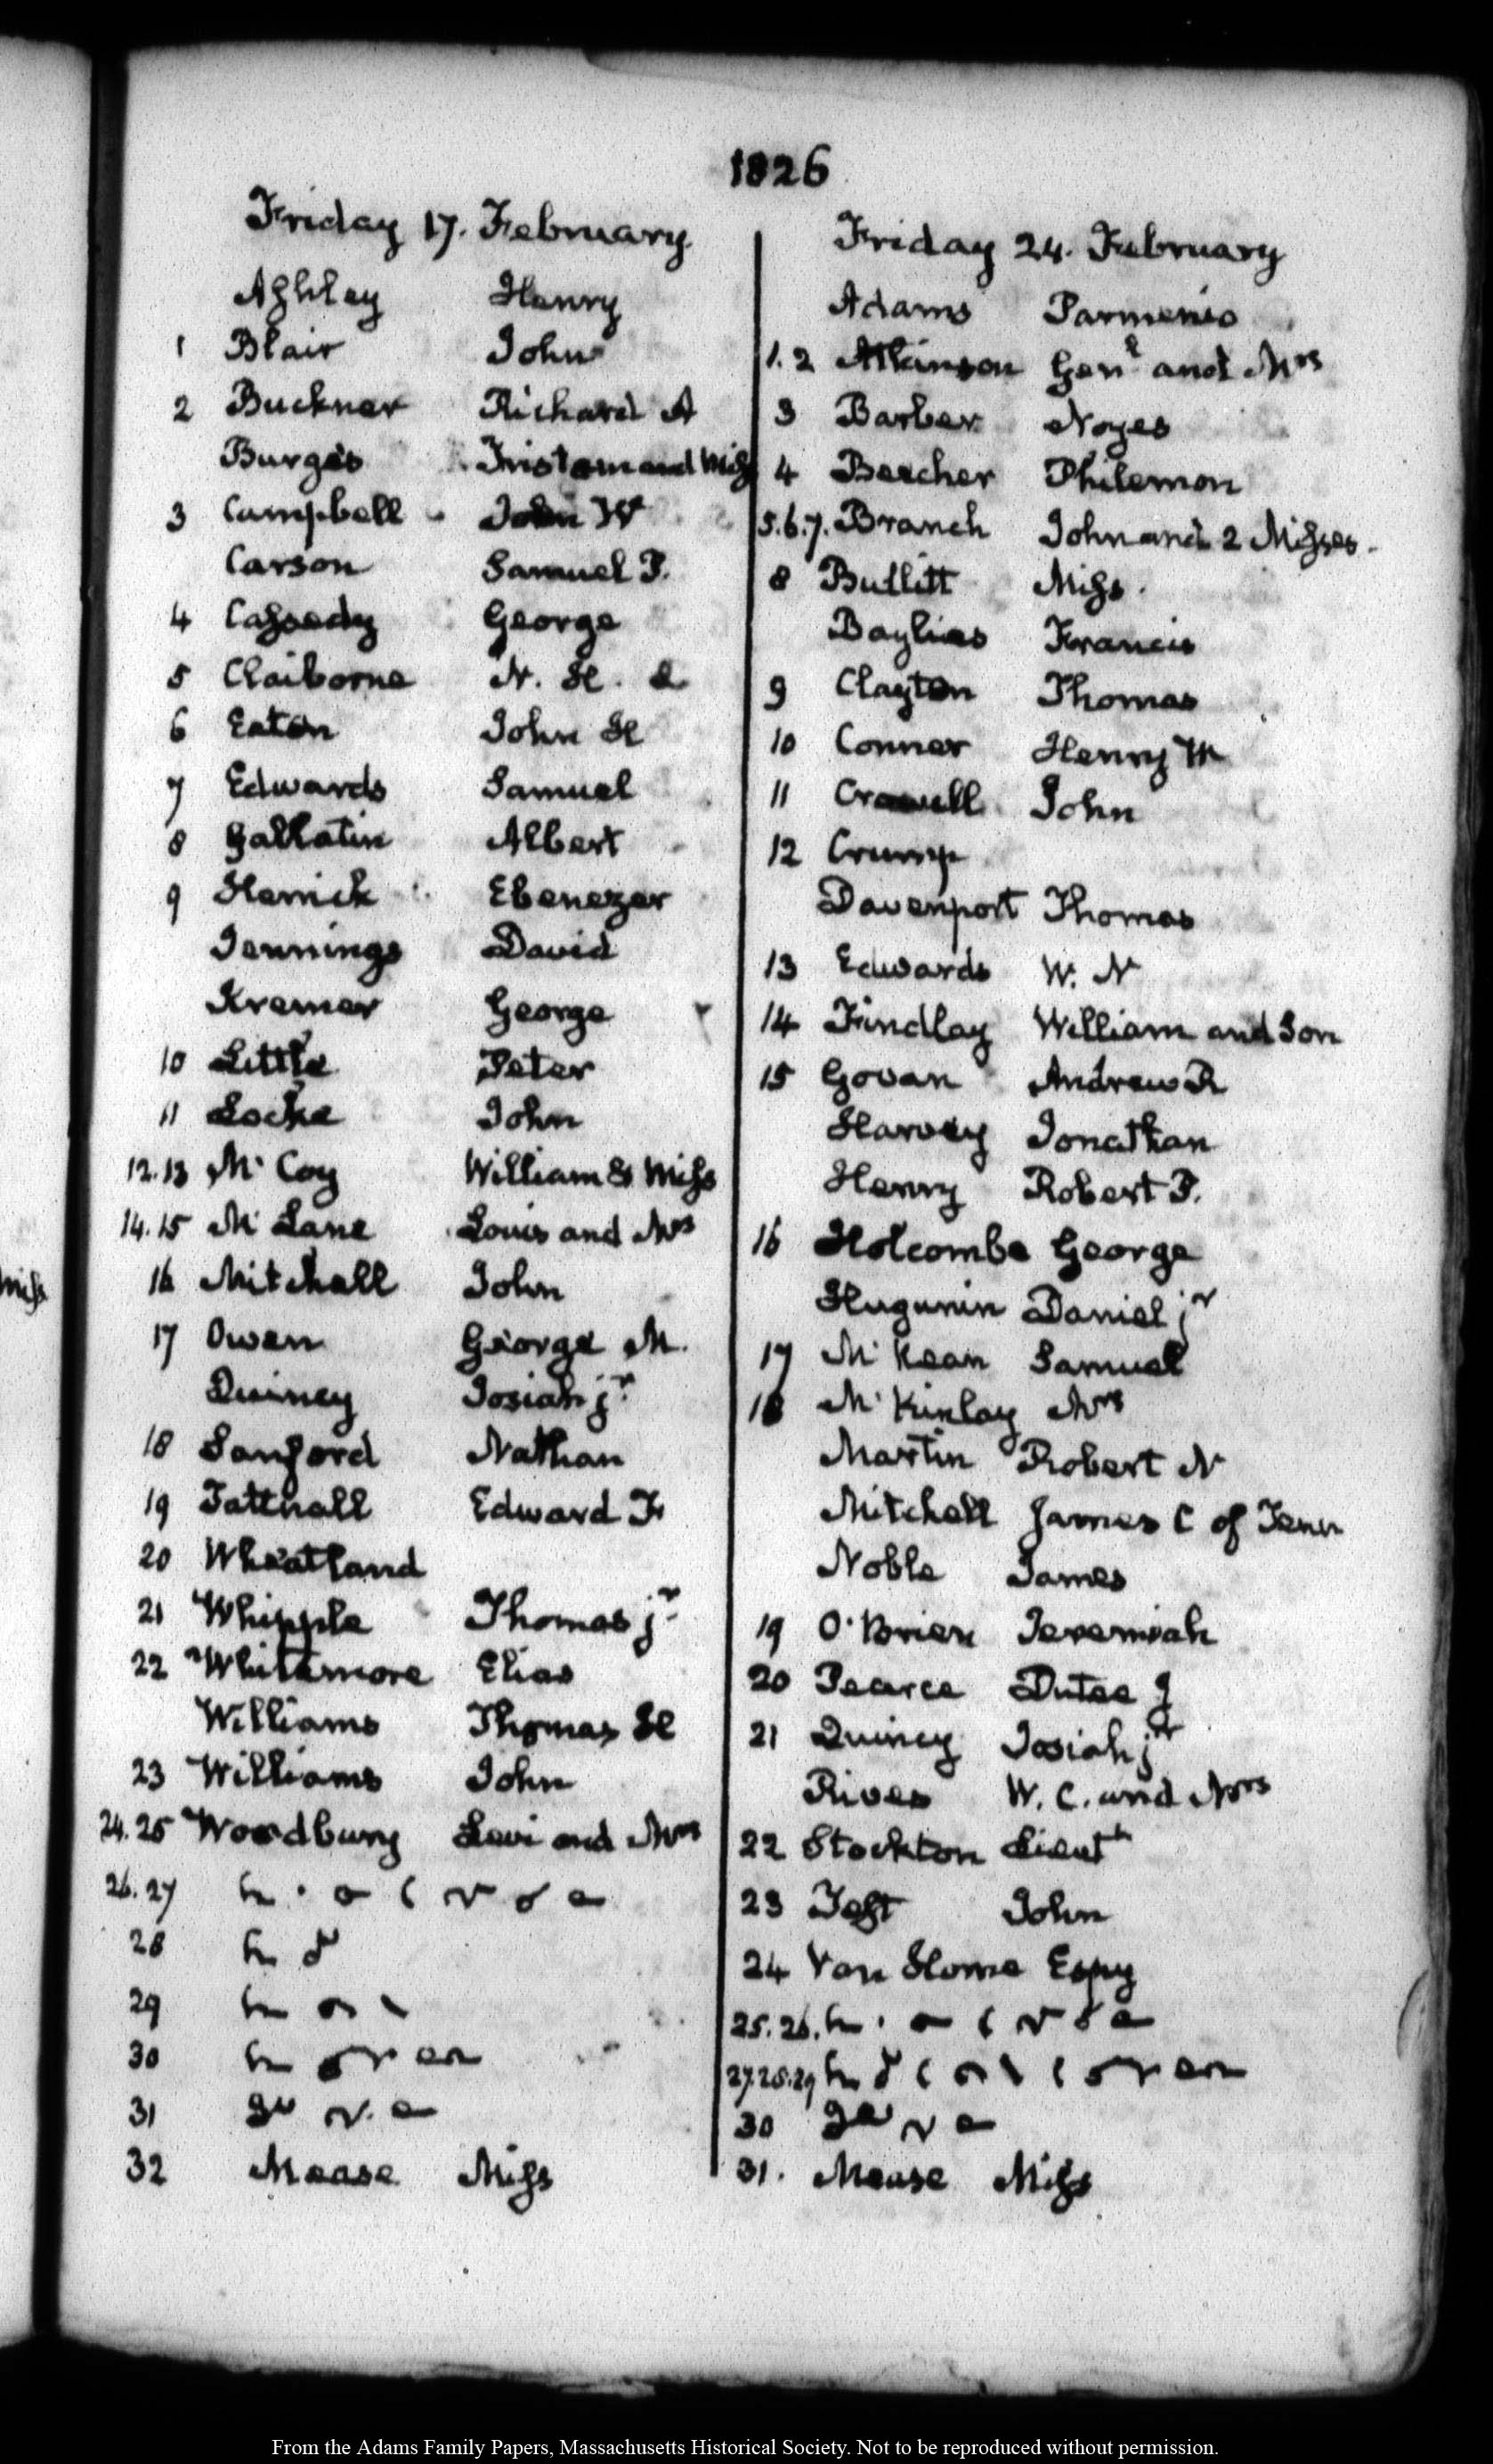 1826
Friday 17. February
Ashley Henry
1 Blair John
2 Buckner Richard A
Burges Tristam and Miss
3 Campbell John W
Carson Samuel P.
4 Cassedy George
5 Claiborne N. H.
6 Eaton John H
7 Edwards Samuel
8 Gallatin Albert
9 Herrick Ebenezer
Jennings David
Kremer George
10 Little Peter
11 Locke John
12.13 Mc Coy William & Miss
14.15 Mc Lane Louis and Mrs
16 Mitchell John
17 Owen George M.
Quincy Josiah jr
18 Sanford Nathan
19 Tattnall Edward F
20 Wheatland
21 Whipple Thomas jr
22 Whittemore Elias
Williams Thomas H
23 Williams John
24.25 Woodbury Levi and Mrs
26.27
28
29
30
31
32 Mease Miss
Friday 24. February
Adams Parmenio
1.2 Atkinson Genl and Mrs
3 Barber Noyes
4 Beecher Philemon
5.6.7. Branch John and 2 Misses.
8 Bullitt Miss.
Baylies Francis
9 Clayton Thomas
10 Conner Henry W
11 Crowell John
12 Crump
Davenport Thomas
13 Edwards W. N
14 Findlay William and Son
15 Govan Andrew R
Harvey Jonathan
Henry Robert P.
16 Holcombe George
Hugunin Daniel jr
17 Mc Kean Samuel
18 Mc Kinlay Mrs
Martin Robert N
Mitchell James C of Tenn
Noble James
19 O'Brien Jeremiah
20 Pearce Dutee J
21 Quincy Josiah jr
Rives W. C. and Mrs
22 Stockton Lieutt
23 Test John
24 Van Horne Espy
25.26.
27.28.29
30
31. Mease Miss
From the Adams Family Papers, Massachusetts Historical Society. Not to be reproduced without permission.